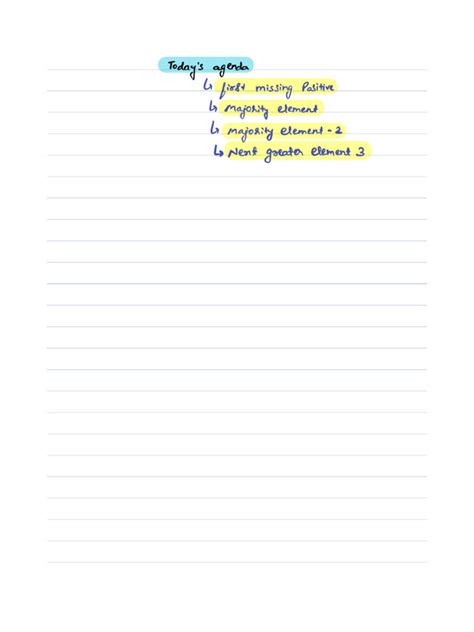 Today's agenda
↳ first missing Positive
↳ Majority element
↳ Majority element - 2
↳ Next greater element 3